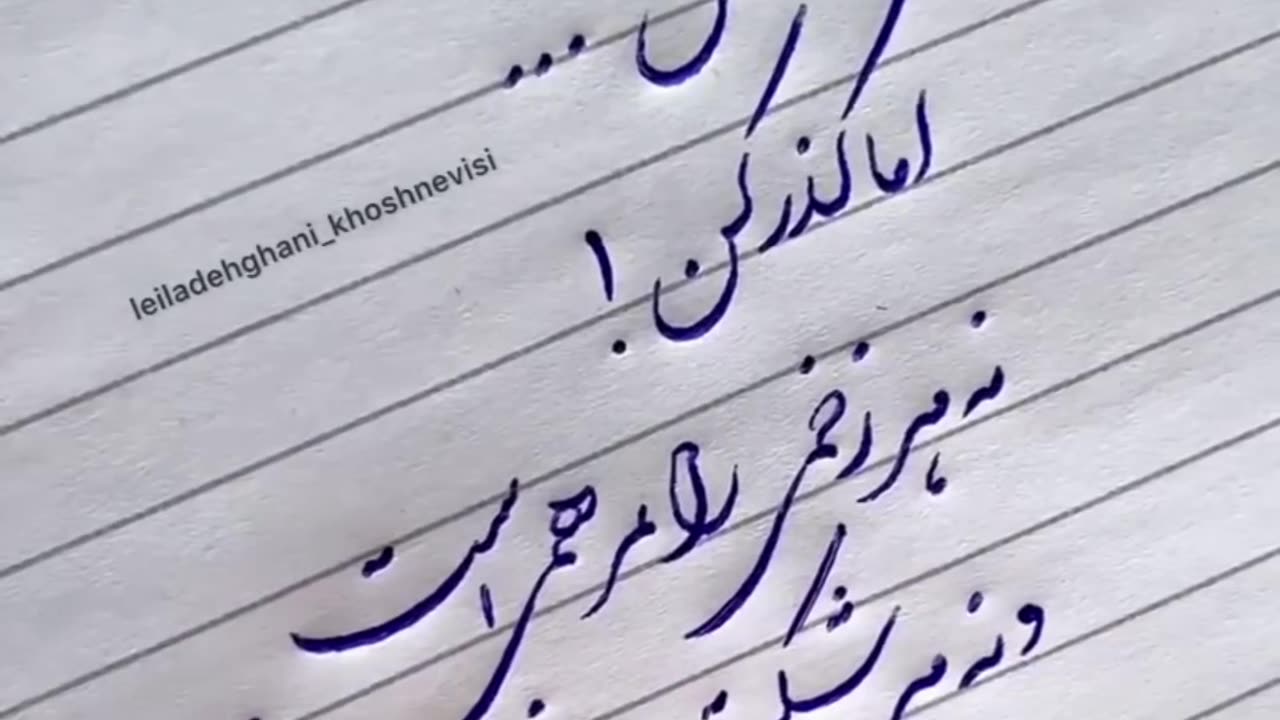 ...
اما گذر کن!
نه هر زخمی را مرهمی است
و نه هر
leiladehghani_khoshnevisi